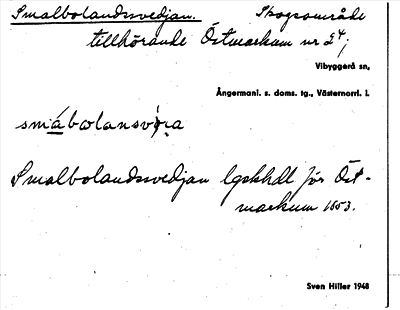 Smalbolandssvedjan. Skogsområde
tillhörande Östmarkum nr 24;
Vibyggerå sn,
Ångermanl. s. doms. tg., Västernorrl. l.
Smalbolandssvedjan lgskhdl för Öst-
markum 1853.
Sven Hiller 1948